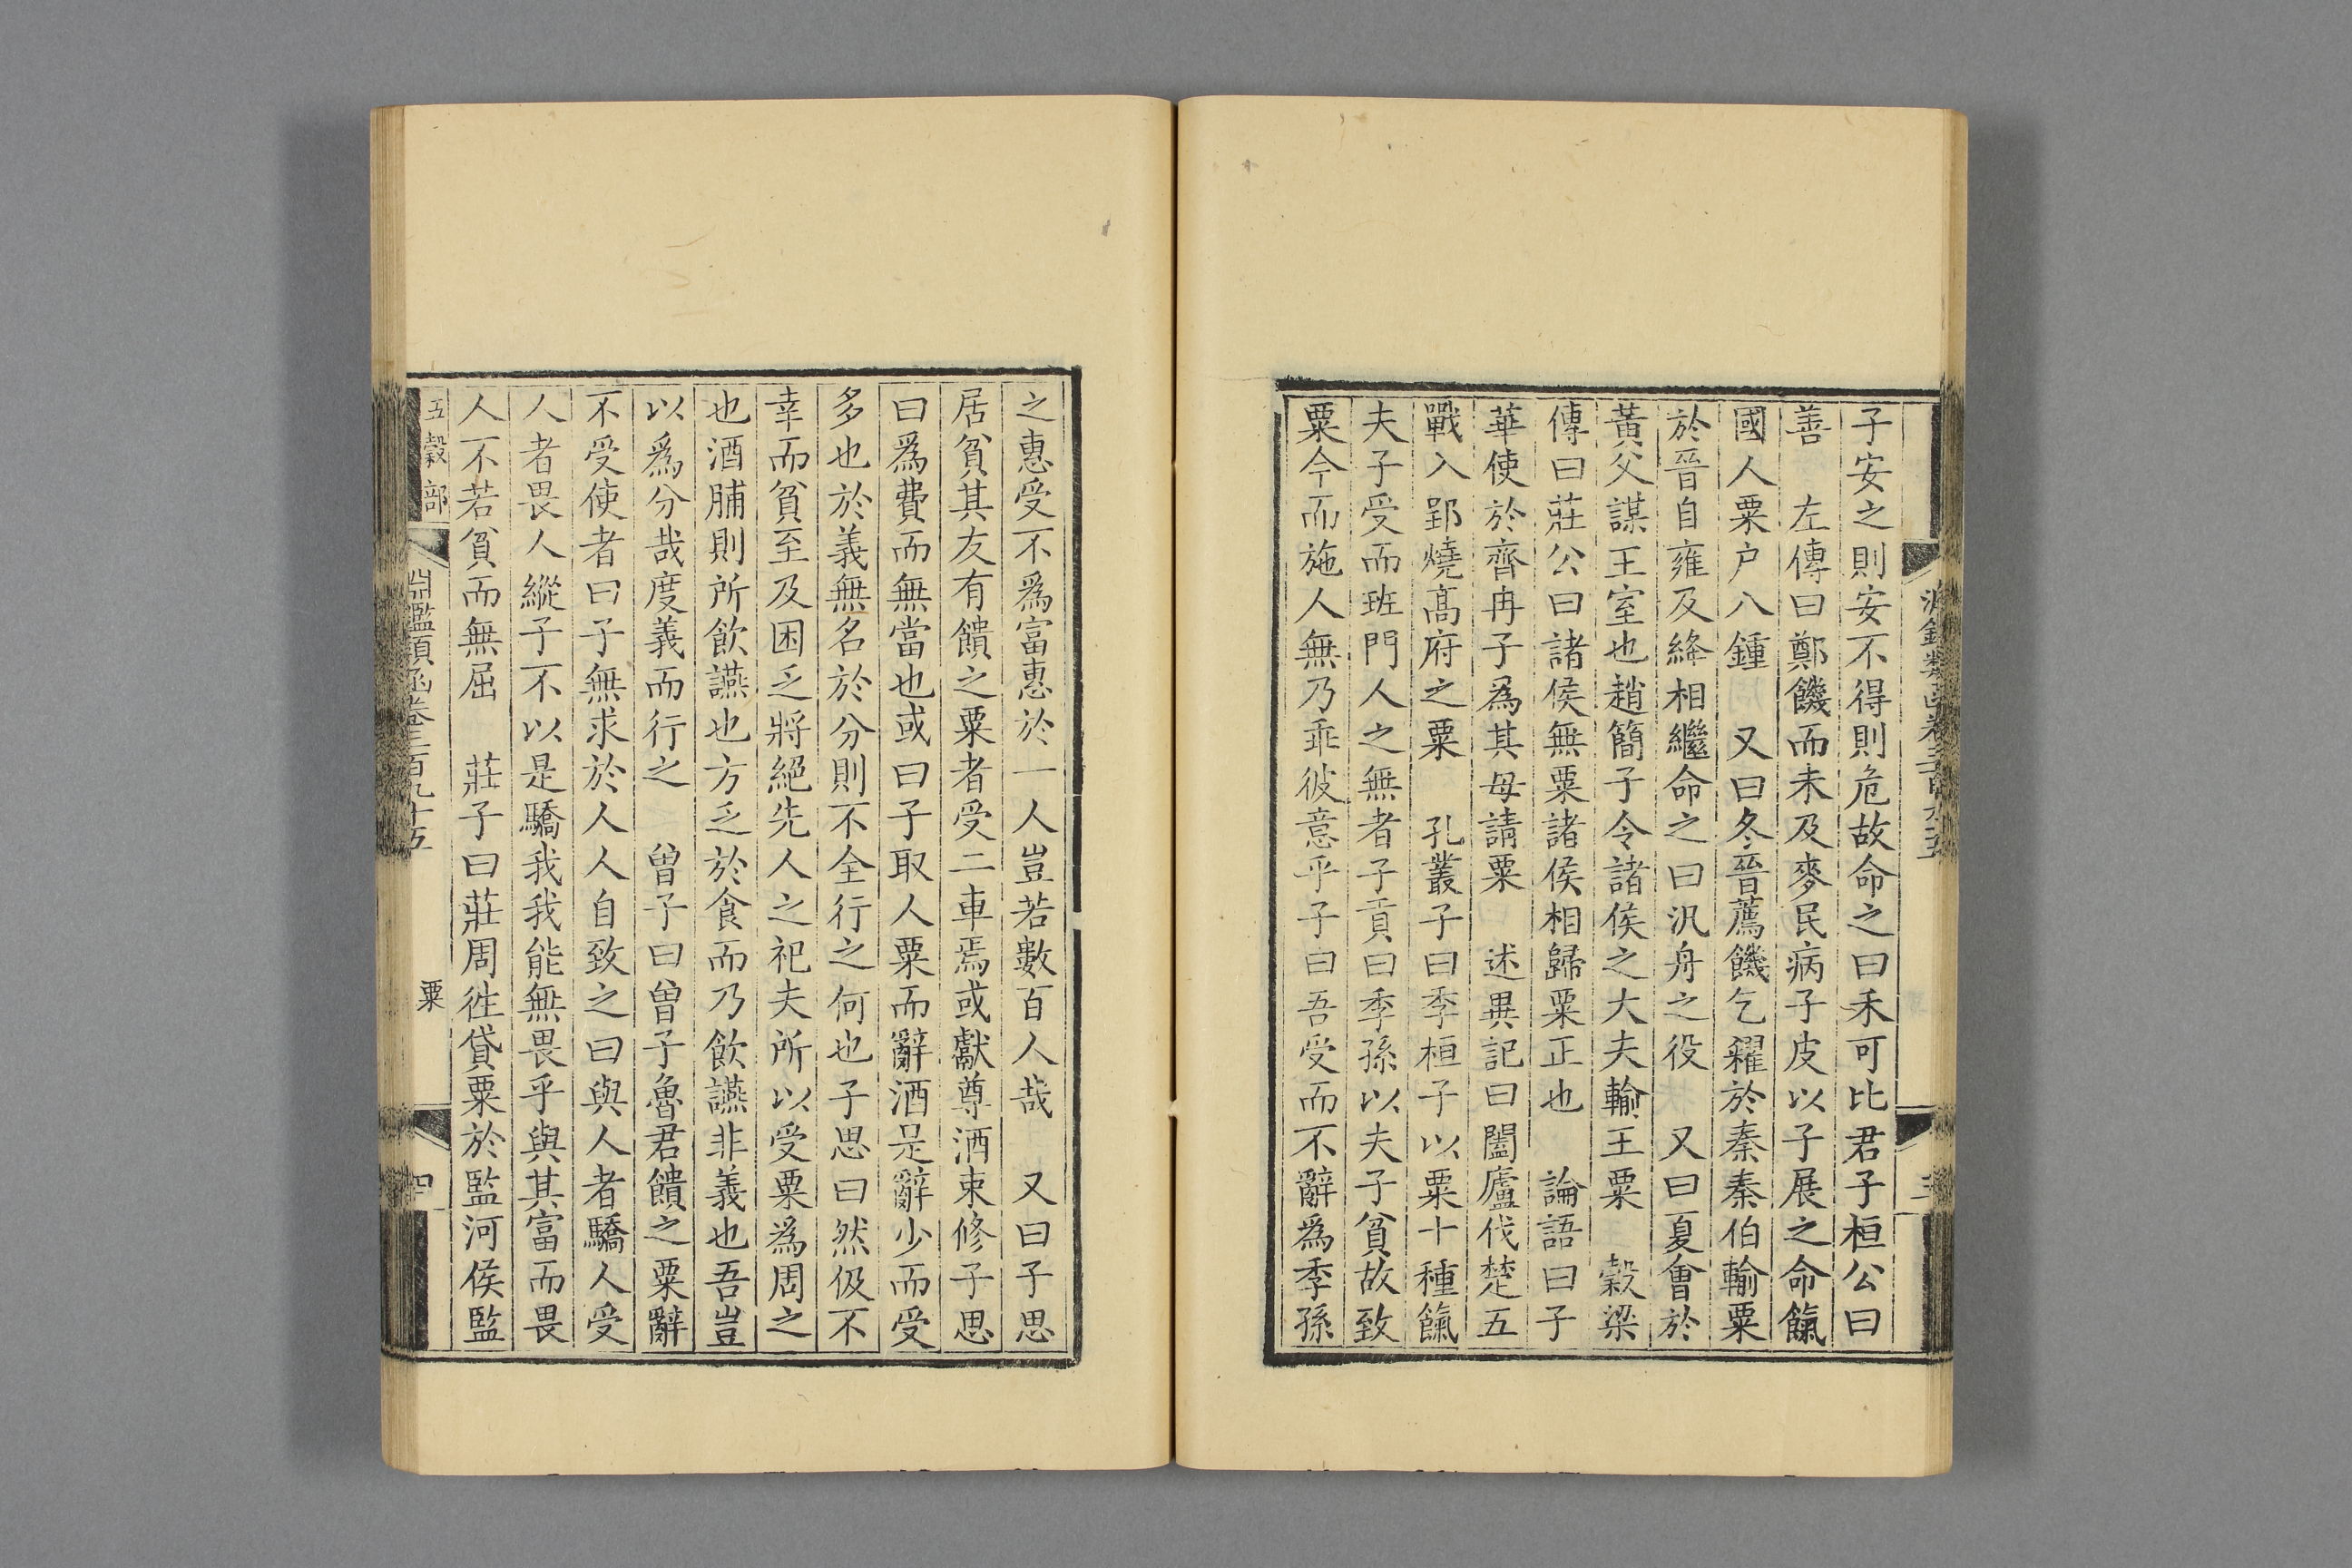 子安之則安不得則危故命之曰禾可比君子桓公曰
善　左傳曰鄭饑而未及麥民病子皮以子展之命餼
國人粟户八鍾　又曰冬晉薦饑乞糴於秦秦伯輸粟
於晉自雍及絳相繼命之曰汎舟之役　又曰夏會於
黃父謀王室也趙簡子令諸侯之大夫輸王粟　穀梁
傳曰莊公曰諸侯無粟諸侯相歸粟正也　論語曰子
華使於齊冉子爲其母請粟　述異記曰闔廬伐楚五
戰入郢燒高府之粟　孔叢子曰季桓子以粟十種餼
夫子受而班門人之無者子貢曰季孫以夫子貧故致
粟今而施人無乃乖彼意乎子曰吾受而不辭爲季孫
之惠受不爲富惠於一人豈若數百人哉　又曰子思
居貧其友有饋之粟者受二車焉或獻尊酒束修子思
曰爲費而無當也或曰子取人粟而辭酒是辭少而受
多也於義無名於分則不全行之何也子思曰然伋不
幸而貧至及困乏將絕先人之祀夫所以受粟爲周之
也酒脯則所飲讌也方乏於食而乃飲讌非義也吾豈
以爲分哉度義而行之　曾子曰曾子魯君饋之粟辭
不受使者曰子無求於人人自致之曰與人者驕人受
人者畏人縱子不以是驕我我能無畏乎與其富而畏
人不若貧而無屈　莊子曰莊周徃貸粟於監河侯監
五穀部　淵鑑類函卷三百九十五　粟　四